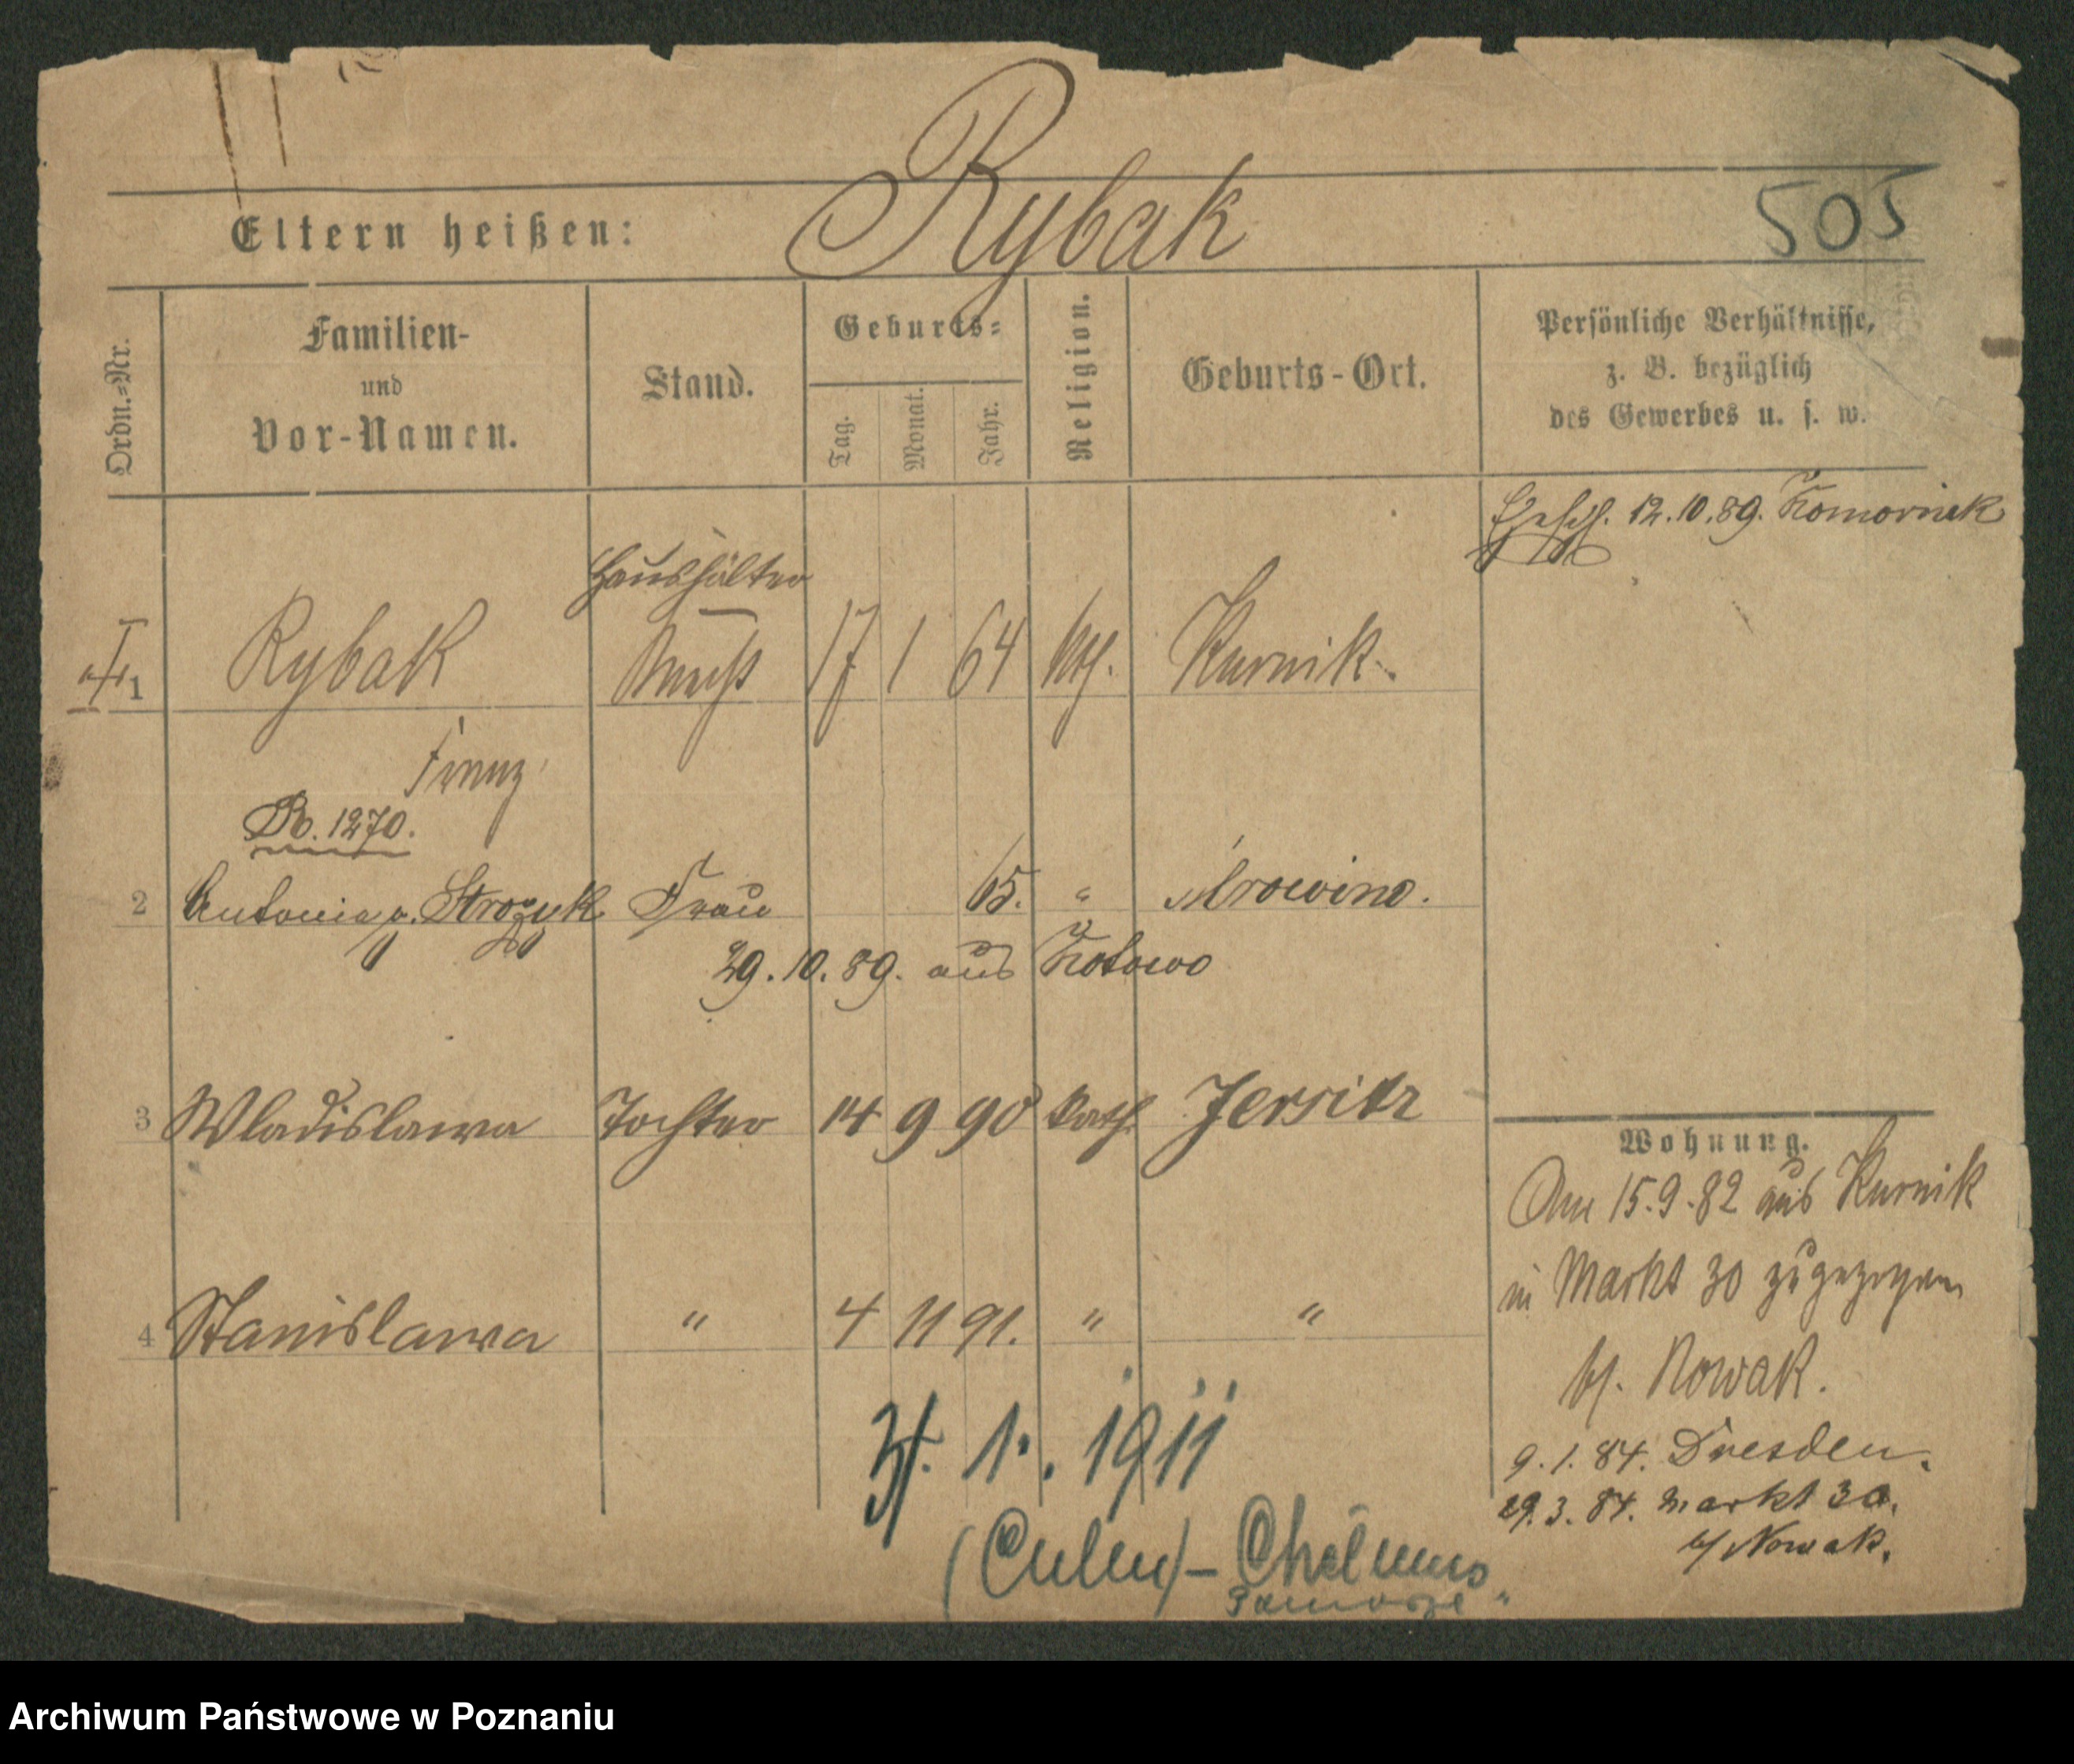 Rybak
Eltern heißen:
505
Ordn.=Nr.
Familien-
und
Vor-Namen.
Stand.
Geburts=
Tag.
Monat.
Jahr.
Religion.
Geburts-Ort.
Persönliche Verhältnisse,
z. B. bezüglich
des Gewerbes u. s. w.
Ehesch. 12.10.89. Komornik
Haushälter
1 Rybak Knecht 17 1 64 kth. Kurnik
Franz
Bo. 1270.
2 Antonia g. Strozyk Frau 65. " Mrowino.
29.10.89. aus Kotowo
3 Wladislawa Tochter 14 9 90 kath. Jersitz
4 Stanislawa " 4 11 91. " "
1. 1911
(Culm) - Chełmno
Pomorze"
Wohnung.
Am 15.9.82 aus Kurnik
in Markt 30 zugezogen
b/. Nowak.
9.1.84. Dresden.
29.3.84. Markt 30.
b/ Nowak.
Archiwum Państwowe w Poznaniu